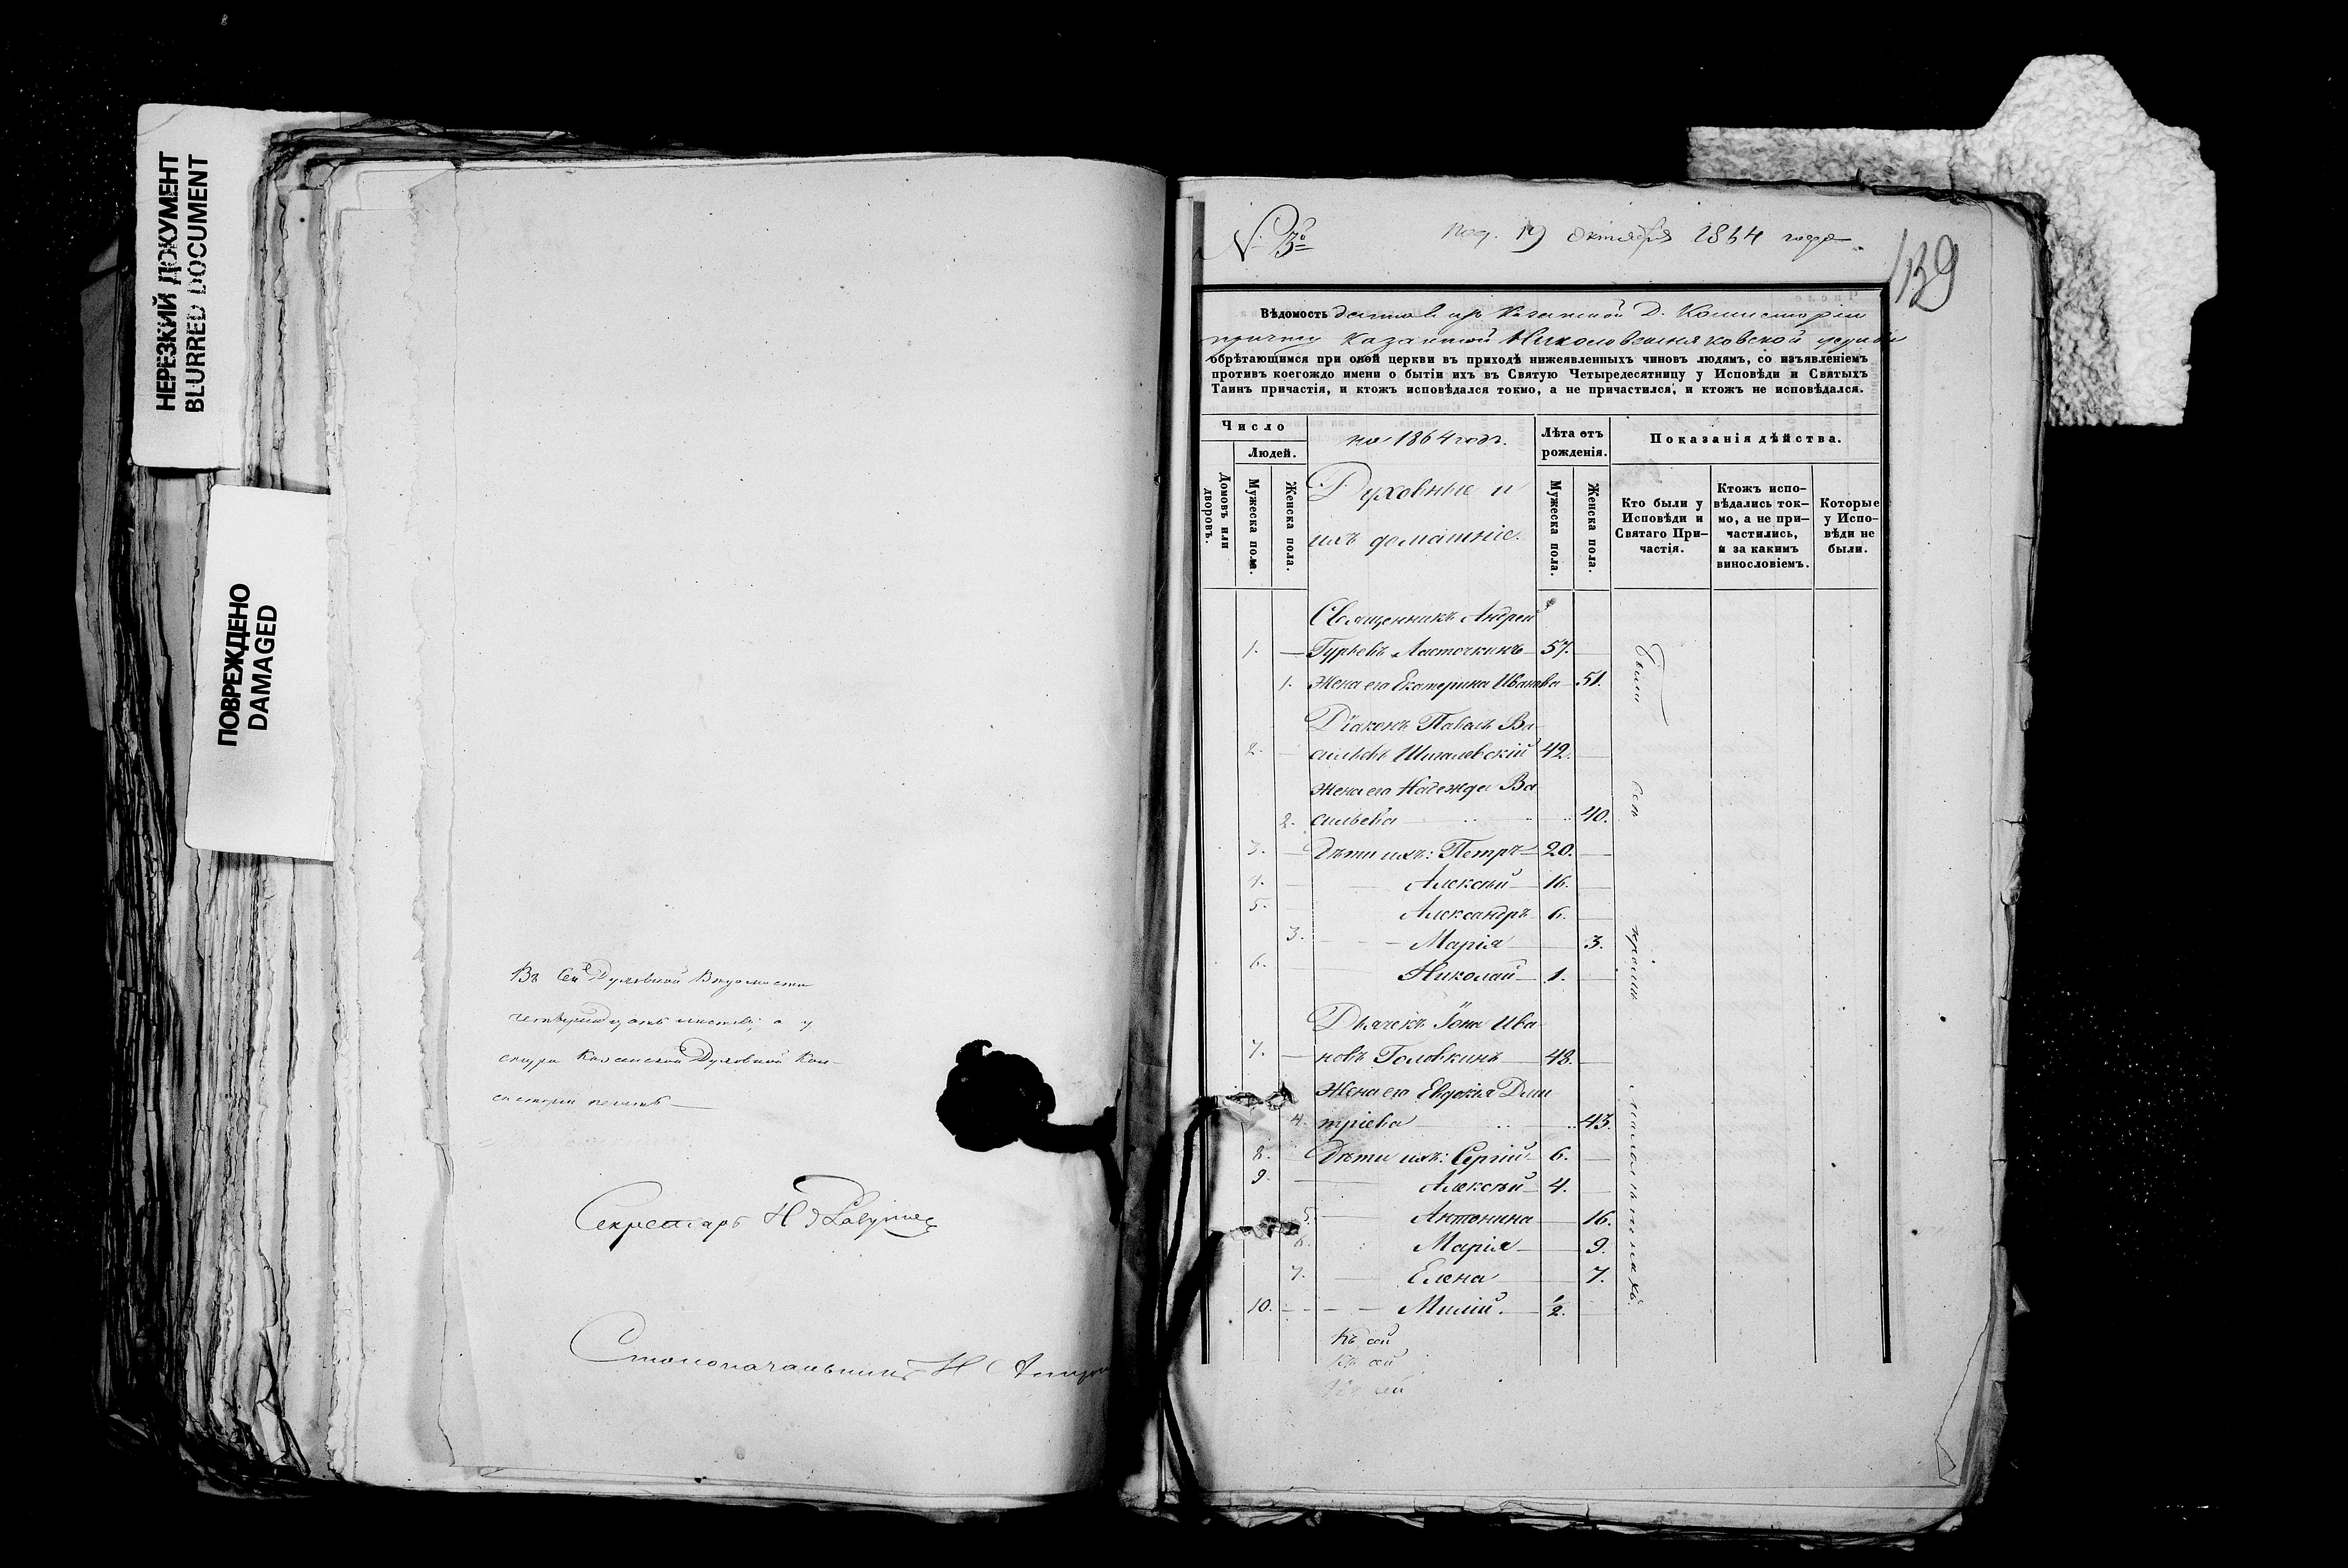 НЕРЕЗКИЙ ДОКУМЕНТ
BLURRED DOCUMENT
ПОВРЕЖДЕНО
DAMAGED
Въ сей Духовной
листовъ; а у
Казанской Духовной Кон-
систоріи печать
Секретарь Н
Столоначальникъ Н
№ 3й
Под. 19 Октября 1864 года.
139
Вѣдомость данная изъ Казанской Д. Консисторіи
причту Казанской церкви
обрѣтающимся при овой церкви въ приходѣ нижеявленныхъ чиновъ людямъ, со изъявленіемъ
противъ коегождо имени о бытіи ихъ въ Святую Четыредесятницу у Исповѣди и Святыхъ
Таинъ причастія, и ктожъ исповѣдался токмо, а не причастился, и ктожъ не исповѣдался.
Число
Людей.
Домовъ или дворовъ.
Мужеска пола.
Женска пола.
на 1864 годъ.
Духовные и
ихъ домашніе.
Лѣта отъ
рожденія.
Мужеска пола.
Женска пола.
Показанія дѣйства.
Кто были у
Исповѣди и
Святаго При-
частія.
Ктожъ испо-
вѣдались ток-
мо, а не при-
частились,
и за какимъ
винословіемъ.
Которые
у Испо-
вѣди не
были.
Священникъ Андрей
1. Гурьевъ Ласточкинъ 57.
1. Жена его Екатерина Иванова 51.
Діаконъ Павелъ Ва
2. сильевъ Шигалевскій 42.
Жена его Надежда Ва
2. сильева 40.
3. Дѣти ихъ: Петръ 20.
4. Алексѣй 16.
5. Александръ 6.
3. Марія 3.
6. Николай 1.
Дьячекъ Іона Ива
7. новъ Головкинъ 48.
Жена его Евдокія Дми
4. тріева 43.
8. Дѣти ихъ: Сергій 6.
9. Алексѣй 4.
5. Антонина 16.
6. Марія 9.
7. Елена 7.
10. 1/2.
Къ сей
Къ сей
Къ сей
Были всѣ кромѣ малолѣтнихъ.